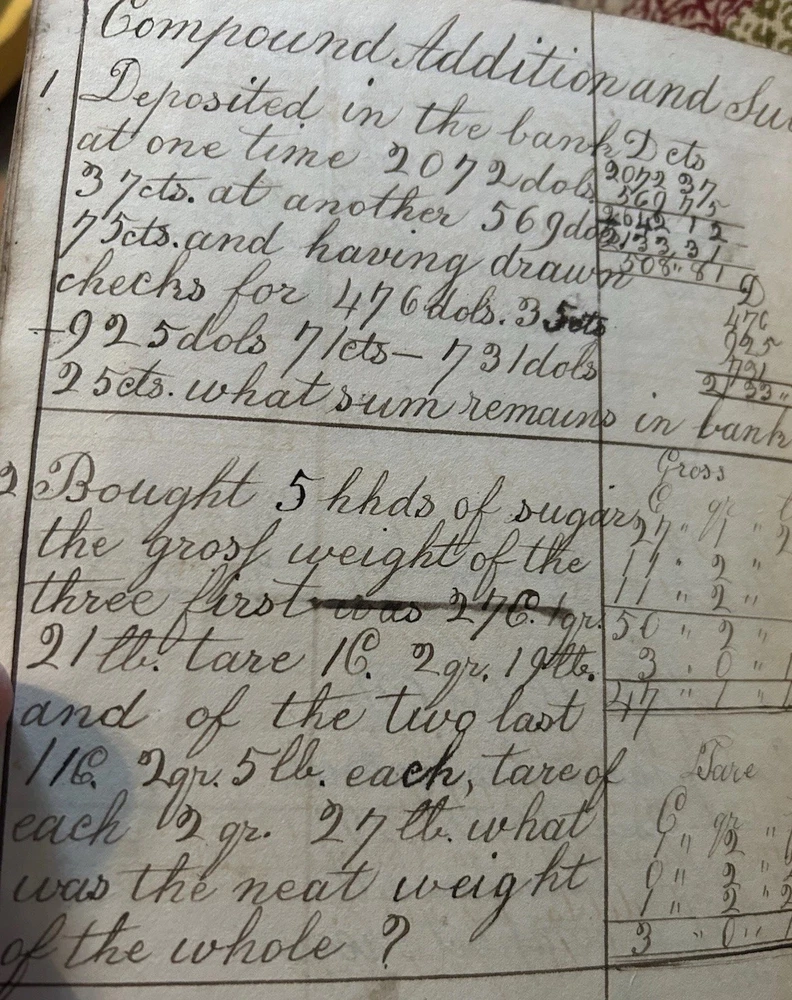 Compound Addition and Su
1 Deposited in the bank
at one time 2072 dols
37cts. at another 569 dols
75cts. and having drawn
checks for 476 dols. 35cts
- 925 dols 71cts - 731 dols
25cts. what sum remains in bank
D cts
2072 37
569 75
2642 12
2133 31
508" 81
D
476
925
731
2133"
2 Bought 5 hhds of sugar,
the gross weight of the
three first was 27C. 1qr.
21 lb. tare 1C. 2qr. 19lb.
and of the two last
11C. 2qr. 5 lb. each, tare of
each 2 qr. 27 lb. what
was the neat weight
of the whole ?
Gross
C qr
27 " 1 " 2
11 " 2 "
11 " 2 "
50 " 2 "
3 " 0 " 1
47 " 1 " 1
Tare
C qr
1 " 2 "
0 " 2 " 2
1 " 2 " 2
3 " 0 " 1